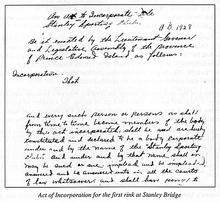 An act to Incorporate the
Stanley Sporting Club.
A.D. 1928
Be it enacted by the Lieutenant Governor
and Legislative Assembly of the province
of Prince Edward Island, as follows:
Incorporation.
That
And every such person or persons as shall
from time to time become members of the body
by this act incorporated, shall be and are hereby
constituted and declared to be a body corporate
under and by the name of the Stanley Sporting
Club and under and by that name shall or
may be sued or sue, implead and be impleaded,
answer and be answered unto in all the courts
of law whatsoever and shall have power to
Act of Incorporation for the first rink at Stanley Bridge